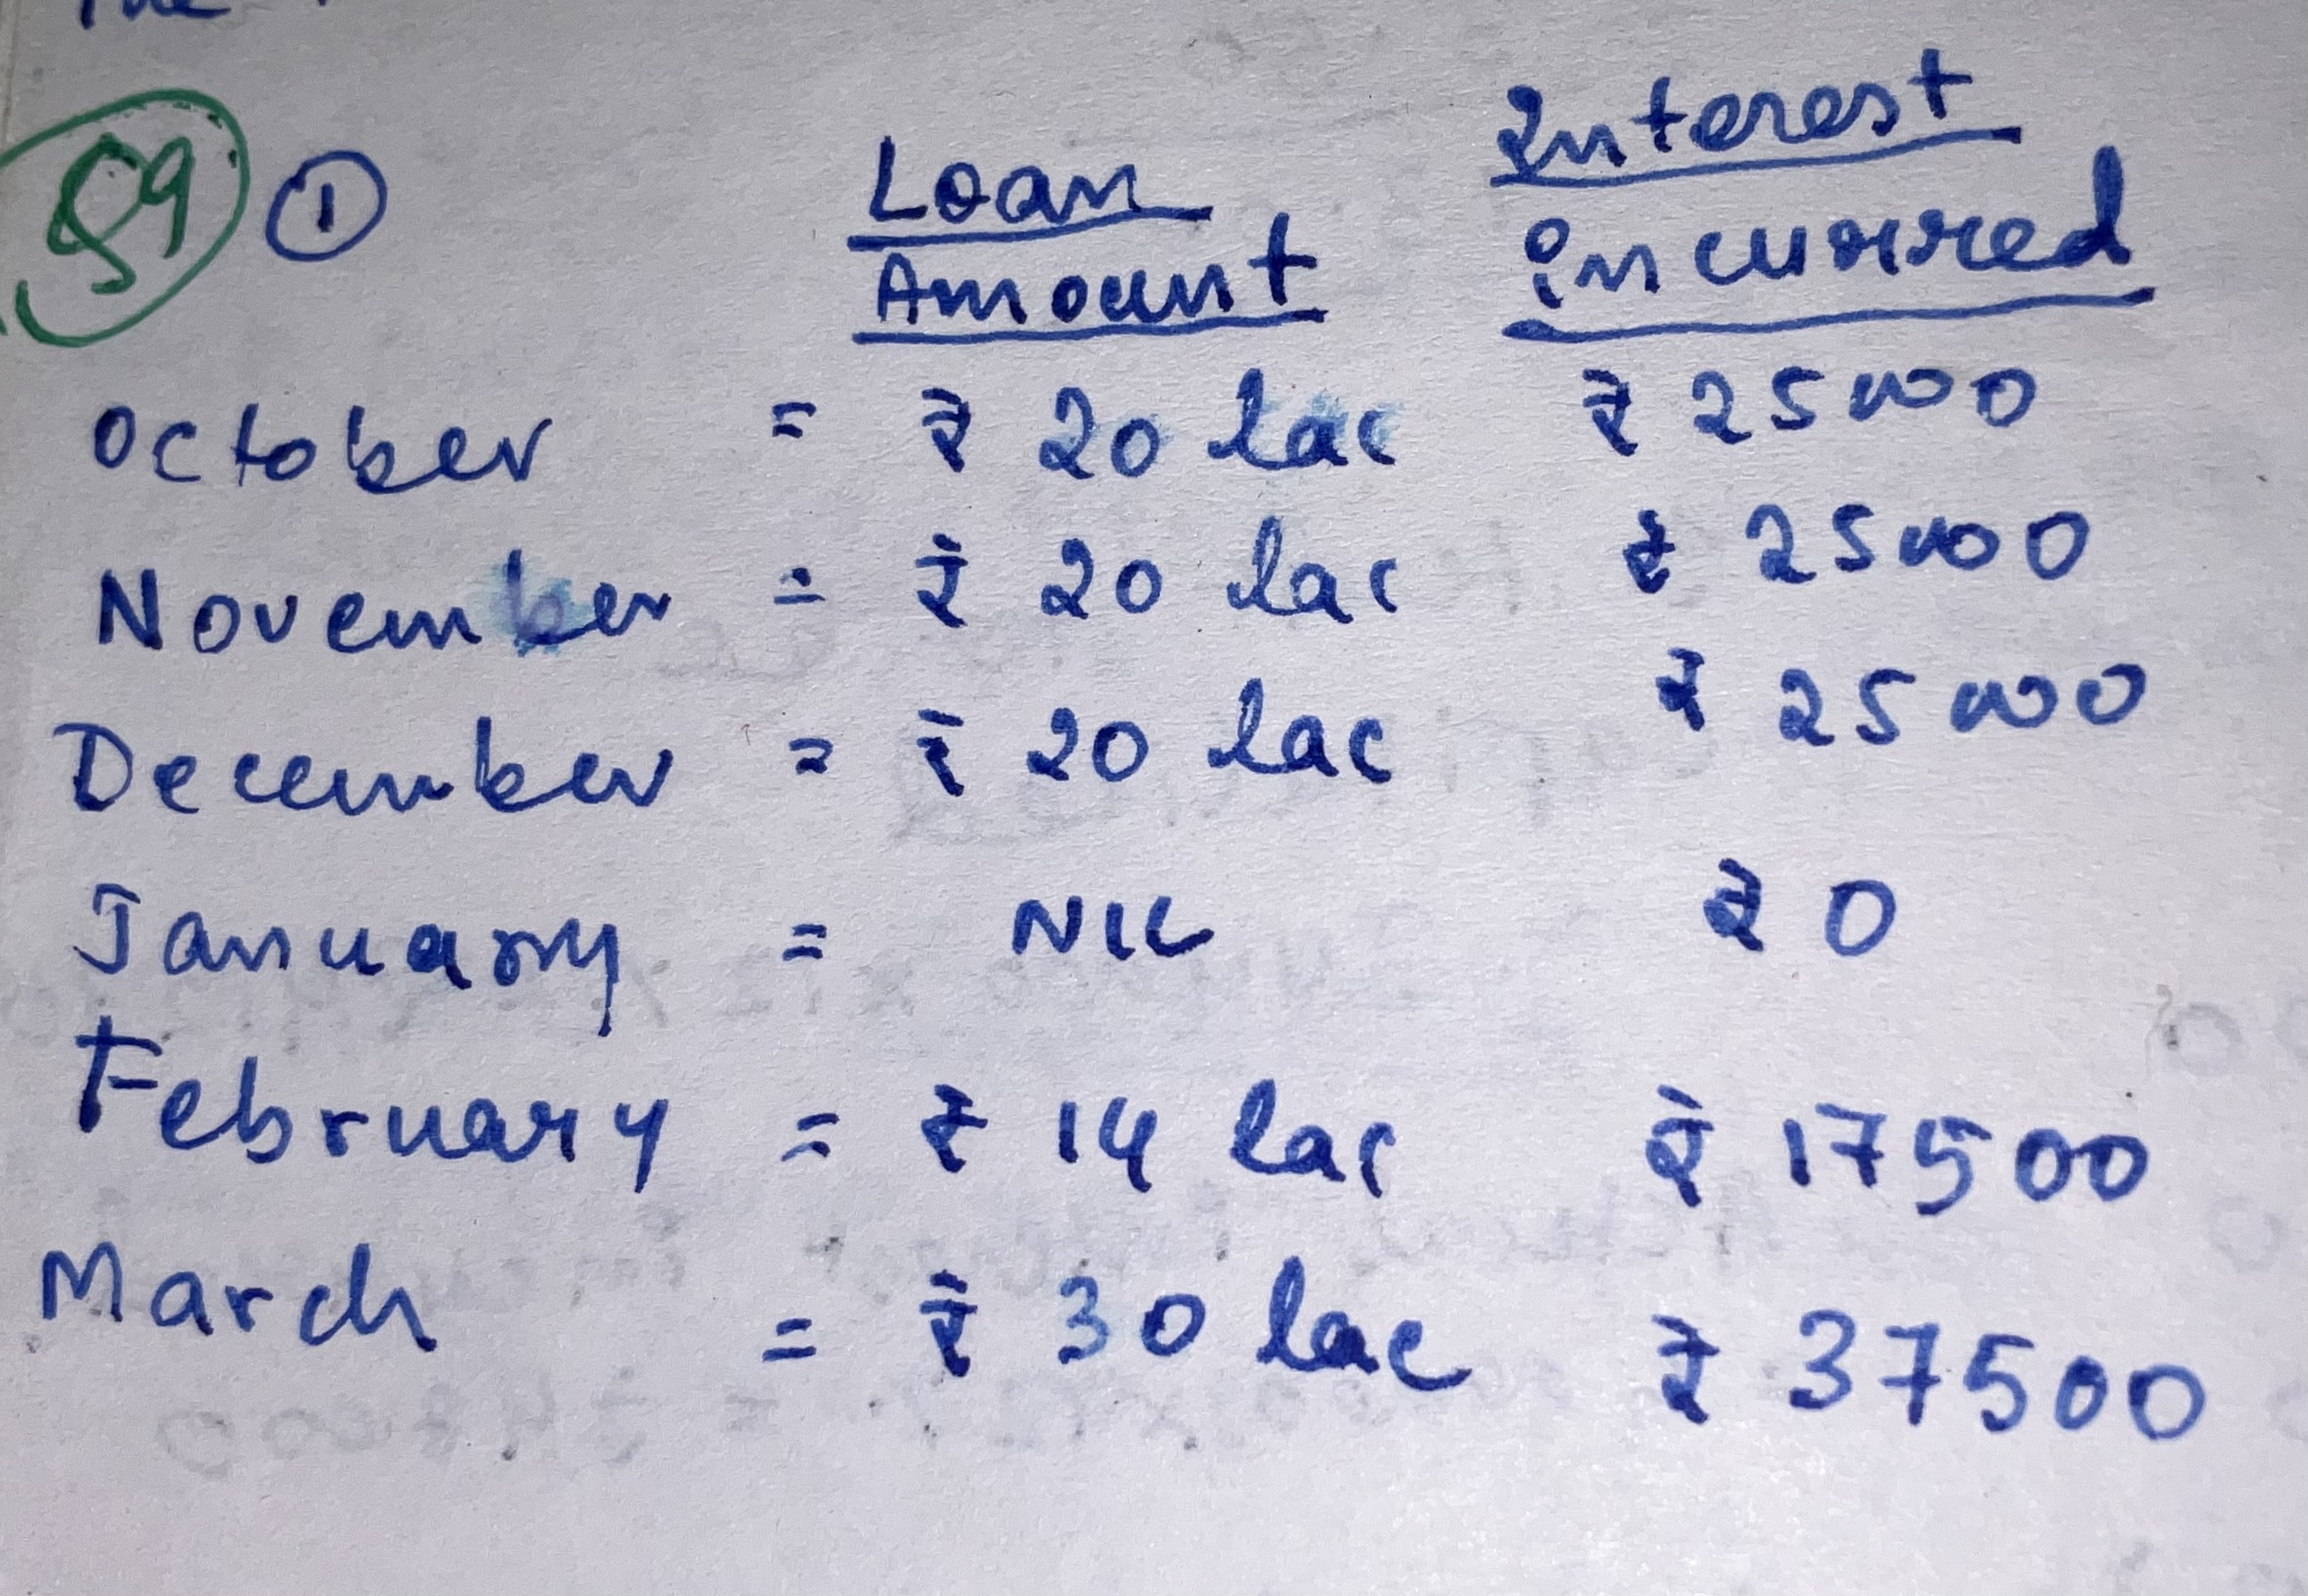 59 ①
Loan Amount
Interest incurred
October = ₹ 20 lac ₹ 25000
November = ₹ 20 lac ₹ 25000
December = ₹ 20 lac ₹ 25000
January = NIL ₹ 0
February = ₹ 14 lac ₹ 17500
March = ₹ 30 lac ₹ 37500